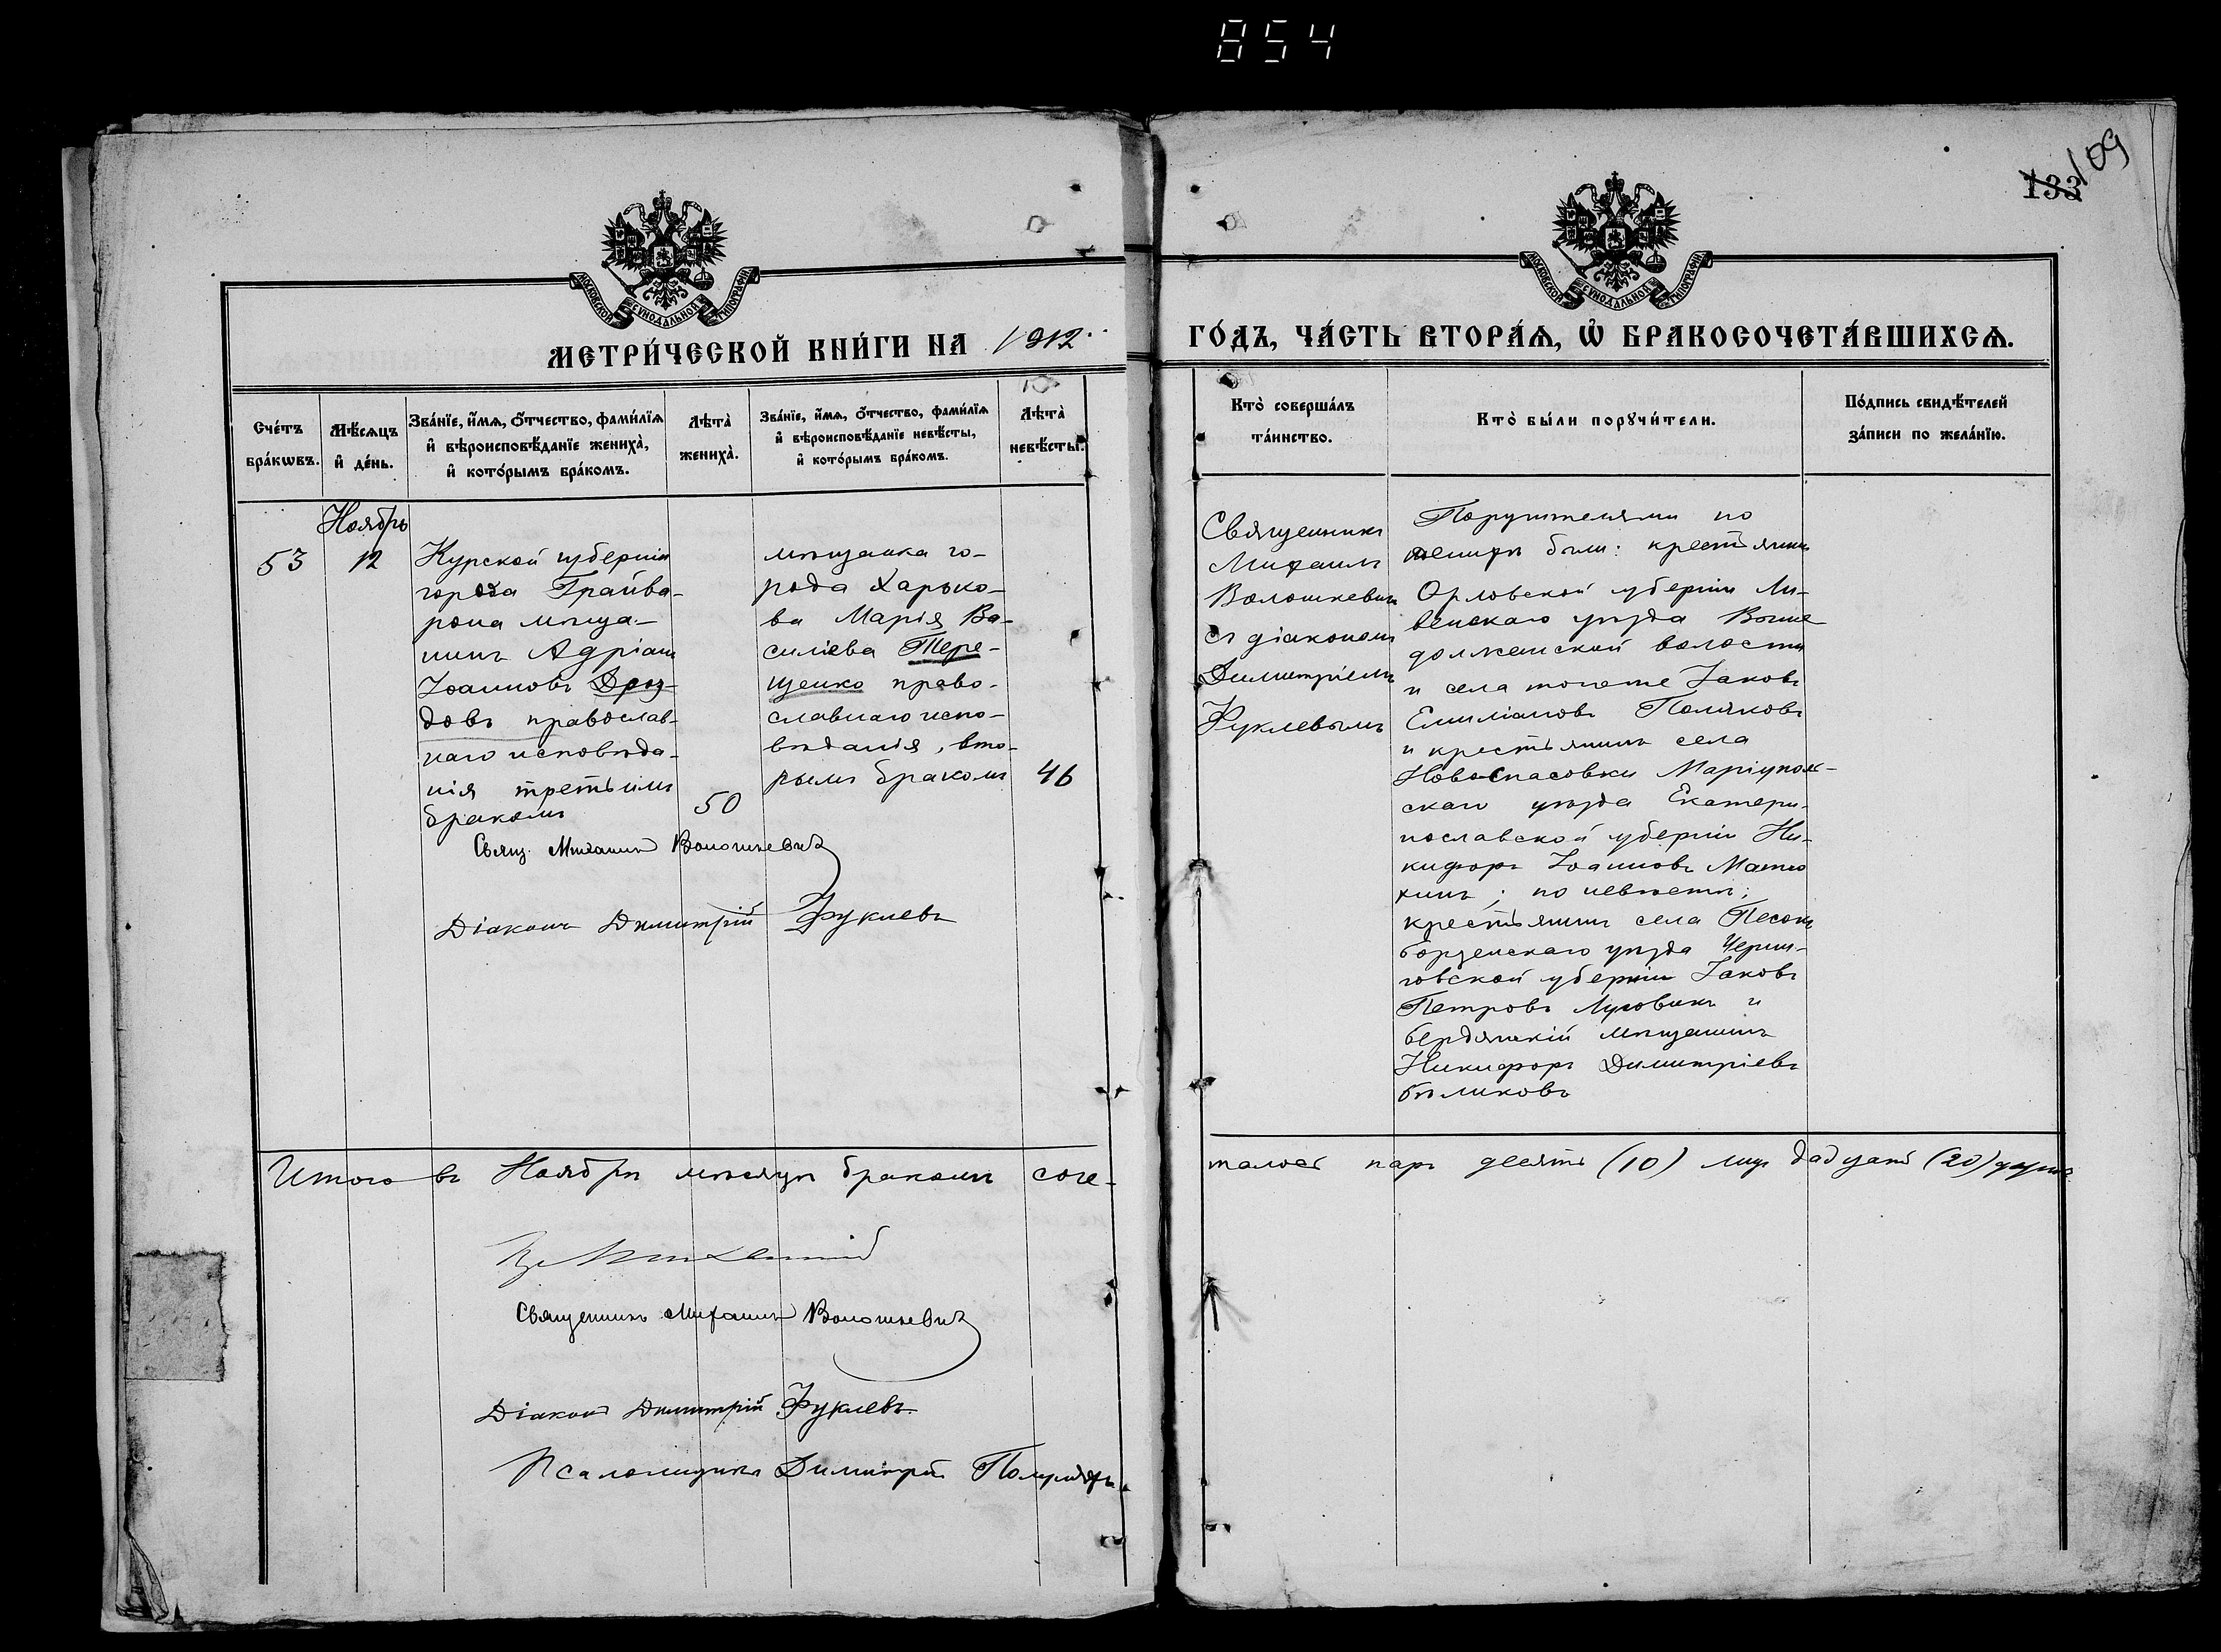 854
133
109
МОСКОВСКОЙ СѴНОДАЛЬНОЙ ТИПОГРАФІИ
МОСКОВСКОЙ СѴНОДАЛЬНОЙ ТИПОГРАФІИ
МЕТРИ́ЧЕСКОЙ КНИ́ГИ НА 1912
ГО́ДЪ, ЧА́СТЬ ВТОРА́Ѧ, Ѽ БРАКОСОЧЕТА́ВШИХСѦ.
Сче́тъ
бра́кѡвъ.
Мѣ́сѧцъ
и҆ де́нь.
Зва́нїе, и҆́мѧ, ѻ҆́тчество, фами́лїѧ
и҆ вѣроисповѣ́данїе жениха̀,
и҆ кото́рымъ бра́комъ.
Лѣта̀
жениха̀.
Зва́нїе, и҆́мѧ, ѻ҆́тчество, фами́лїѧ
и҆ вѣроисповѣ́данїе невѣ́сты,
и҆ кото́рымъ бра́комъ.
Лѣта̀
невѣ́сты.
Кто̀ соверша́лъ
та́инство.
Кто̀ бы́ли порꙋчи́тели.
По́дпись свидѣ́телей
за́писи по жела́нїю.
Ноябрь
53
12
Курской губерніи
города Грайво-
рона мѣща-
нинъ Адріанъ
Іоанновъ Дроз-
довъ православ-
наго исповѣда-
нія третьимъ
бракомъ
50
мѣщанка го-
рода Харько-
ва Марія Ва-
силіева Тере-
щенко право-
славнаго испо-
вѣданія, вто-
рымъ бракомъ
46
Свящ. Михаилъ Волошкевичъ
Діаконъ Димитрій Фуклевъ
Священникъ
Михаилъ
Волошкевичъ
съ діакономъ
Димитріемъ
Фуклевымъ
Поручителями по
женихѣ были: крестьянинъ
Орловской губерніи Ли-
венскаго уѣзда Выше
должанской волости
и села тогоже Іаковъ
Емиліановъ Поляковъ
и крестьянинъ села
Новоспасовки Маріуполь-
скаго уѣзда Екатери-
нославской губерніи Ни-
кифоръ Іоанновъ Матю
хинъ; по невѣстѣ;
крестьянинъ села Песокъ
борзенскаго уѣзда Черни-
говской губерніи Іаковъ
Петровъ Луговикъ и
бердянскій мѣщанинъ
Никифоръ Димитріевъ
бѣликовъ
Итого въ Ноябрѣ мѣсяцѣ бракомъ соче-
талось паръ десять (10) лицъ двадцать (20)
Священникъ Михаилъ Волошкевичъ
Діаконъ Димитрій Фуклевъ
Псаломщикъ Димитрій